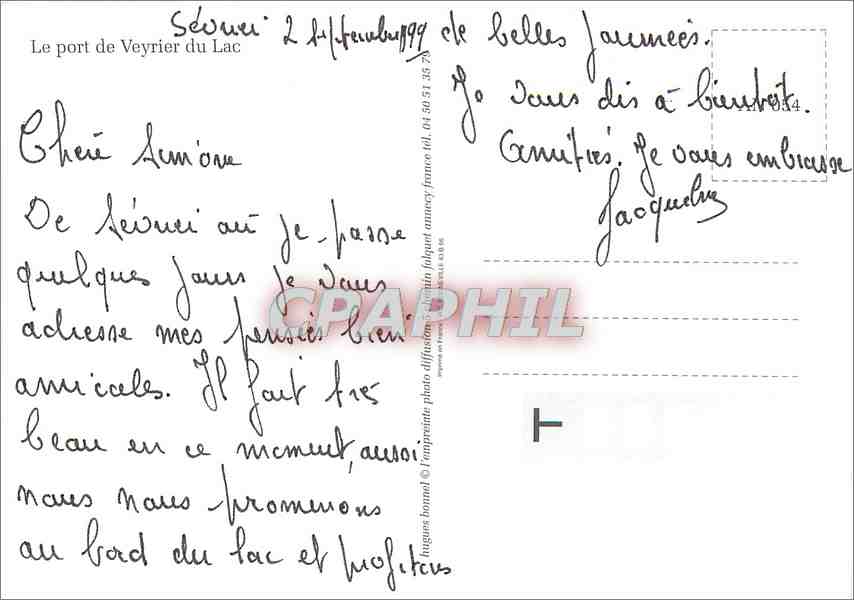 Sévrier 2 septembre 99
Le port de Veyrier du Lac
Chère Simone
De Sévrier où je passe
quelques jours je vous
adresse mes pensées bien
amicales. Il fait très
beau en ce moment, aussi
nous nous promenons
au bord du lac et profitons
de belles journées.
Je vous dis à bientôt.
Amitiés. Je vous embrasse
Jacqueline
hugues bonnel © l'empreinte photo diffusion 5 chemin falquet annecy france tél. 04 50 51 35 75
CPAPHIL
T